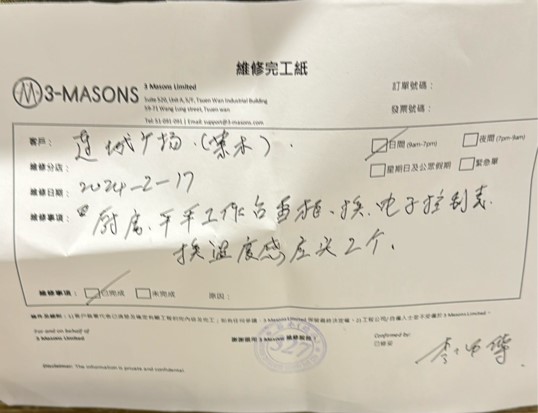 維修完工紙
3-MASONS
3 Masons Limited
Suite 520, Unit A, 5/F, Tsuen Wan Industrial Building
59-71 Wang Lung street, Tsuen wan
Email: support@3-masons.com
訂單號碼：
發票號碼：
客戶： 連城广场（業木）.
日間 (9am-7pm) 夜間 (7pm-9am)
維修分店：
星期日及公眾假期 緊急單
維修日期： 2024-2-17
維修事項： 厨房、平手工作台雪柜、换电子控制表
换温度感应头2个.
維修事項： 已完成 未完成 原因：
For and on behalf of
3 Masons Limited
Confirmed by:
327
Disclaimer: The information is private and confidential.